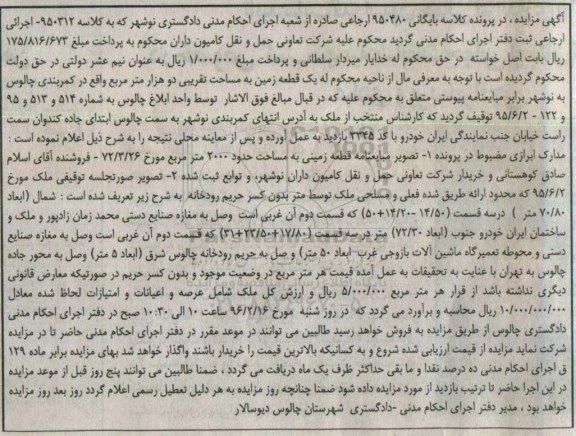 آگهی مزایده ، در پرونده کلاسه بایگانی ۹۵۰۴۸۰ ارجاعی صادره از شعبه اجرای احکام مدنی دادگستری نوشهر که به کلاسه ۹۵۰۳۱۲- اجرائی
ارجاعی ثبت دفتر اجرای احکام مدنی گردید محکوم علیه شرکت تعاونی حمل و نقل کامیون داران محکوم به پرداخت مبلغ ۱۷۵/۸۱۶/۶۷۳
ریال بابت اصل خواسته در حق محکوم له خدایار میرداز سلطانی و پرداخت مبلغ ۱/۰۰۰/۰۰۰ ریال به عنوان نیم عشر دولتی در حق دولت
محکوم گردیده است با توجه به معرفی مال از ناحیه محکوم له یک قطعه زمین به مساحت تقریبی دو هزار متر مربع واقع در کمربندی چالوس
به نوشهر برابر مبایعنامه پیوستی متعلق به محکوم علیه که در قبال مبالغ فوق الاشار توسط واحد ابلاغ چالوس به شماره ۵۱۴ و ۵۱۳ و ۹۵
و ۱۲۲ - ۹۵/۶/۲ توقیف گردید که کارشناس منتخب از ملک به آدرس انتهای کمربندی نوشهر به سمت چالوس ابتدای جاده کندوان سمت
راست خیابان جنب نمایندگی ایران خودرو با کد ۳۳۴۵ بازدید به عمل آورده و پس از معاینه محلی نتیجه را به شرح ذیل اعلام نموده است :
مدارک ابرازی مضبوط در پرونده ۱- تصویر مبایعنامه قطعه زمینی به مساحت حدود ۲۰۰۰ متر مربع مورخ ۷۲/۳/۲۶ - فروشنده آقای اسلام
صادق کوهستانی و خریدار شرکت تعاونی حمل و نقل کامیون داران نوشهر، و توابع ثبت شده ۲- تصویر صورتجلسه توقیفی ملک مورخ
۹۵/۶/۲ که محدود ارائه طریق شده فعلی و مسلحی ملک توسط متر بدون کسر حریم رودخانه به شرح زیر تعریف شده است : شمال (ابعاد
۷۰/۸۰ متر ) درسه قسمت (۱۴/۵۰ -۱۴/۲۰+۵۰) که قسمت دوم آن غربی است وصل به مغازه صنایع دستی محمد زمان زادپور و ملک و
ساختمان ایران خودرو جنوب (ابعاد ۷۲/۳۰) متر در سه قسمت (۱۷/۸۰+۲۳/۵۰+۳۱) که قسمت دوم آن غربی است وصل به مغازه صنایع
دستی و محوطه تعمیرگاه ماشین آلات بازوجی غرب -ابعاد ۵۰ متر) و صل به حریم رودخانه چالوس شرق (ابعاد ۵ متر) وصل به محور جاده
چالوس به تهران با عنایت به تحقیقات به عمل آمده قیمت هر متر مربع در وضعیت موجود و بدون کسر حریم در صورتیکه معارض قانونی
دیگری نداشته باشد از قرار هر متر مربع ۵/۰۰۰/۰۰۰ ریال و ارزش کل ملک شامل عرصه و اعیانات و امتیازات لحاظ شده معادل
۱۰/۰۰۰/۰۰۰/۰۰۰ ریال محاسبه و برآورد می گردد که در روز شنبه مورخ ۹۶/۲/۱۶ ساعت ۱۰ الی ۱۰:۳۰ صبح در دفتر اجرای احکام مدنی
دادگستری چالوس از طریق مزایده به فروش خواهد رسید طالبین می توانند در موعد مقرر در دفتر اجرای احکام مدنی حاضر تا در مزایده
شرکت نماید مزایده از قیمت ارزیابی شده شروع و به کسانیکه بالاترین قیمت را خریدار باشند واگذار خواهد شد بهای مزایده برابر ماده ۱۲۹
ق اجرای احکام مدنی ده درصد نقدا و ما بقی حداکثر ظرف یک ماه دریافت می گردد ، ضمنا طالبین می توانند پنج روز قبل از موعد مزایده
در این اجرا حاضر تا ترتیب بازدید از مورد مزایده داده شود ضمنا چنانچه روز مزایده به هر دلیل تعطیل رسمی اعلام گردد روز بعد روز مزایده
خواهد بود ، مدیر دفتر اجرای احکام مدنی -دادگستری شهرستان چالوس دیوسالار